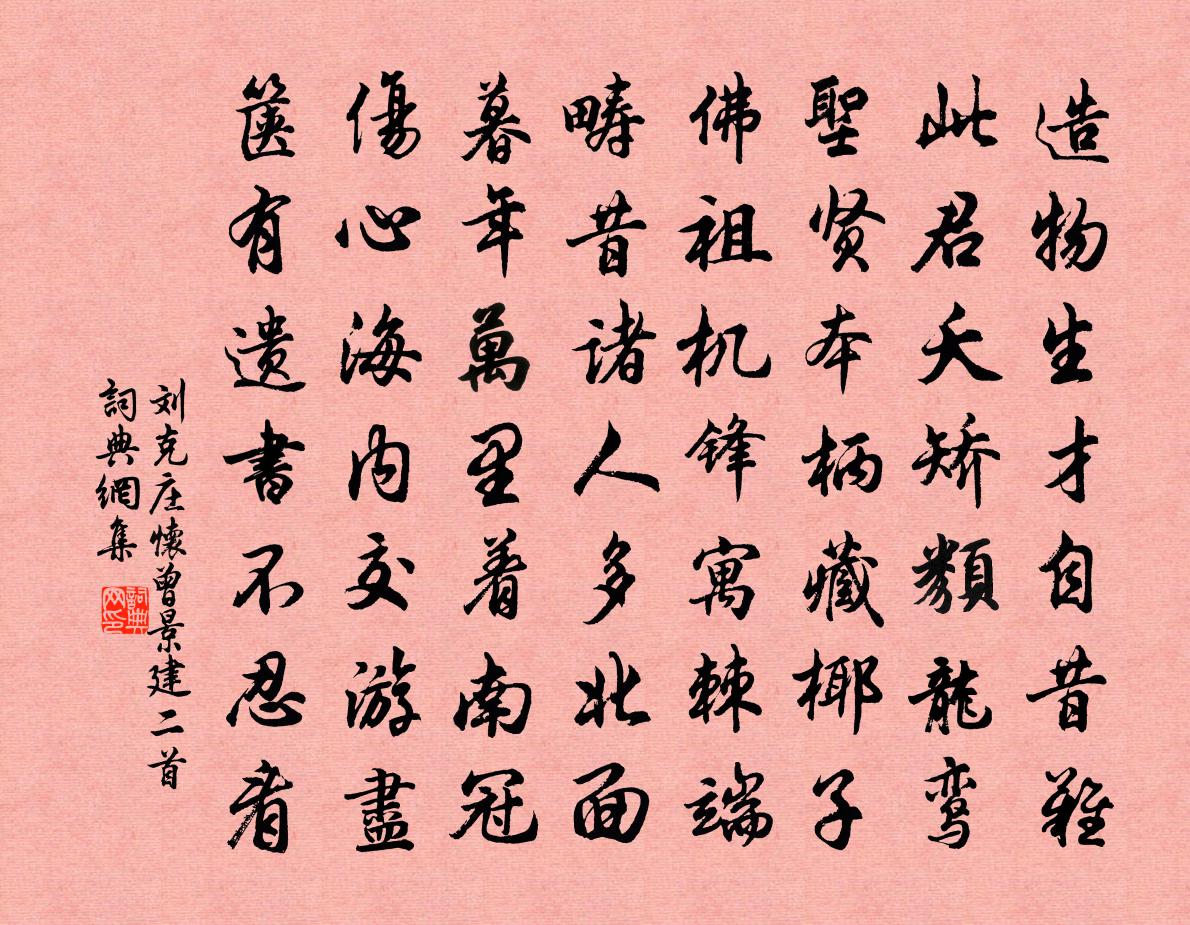 造物生才自昔難
此君夭矫類龍鸾
聖贤本柄藏椰子
佛祖机锋寓棘端
疇昔诸人多北面
暮年萬里着南冠
傷心海内交游盡
箧有遗書不忍看
刘克庄懷曾景建二首
詞典網集
詞典网印